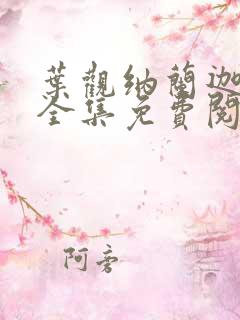 葉觀納蘭迦
全集免費閱
阿旁